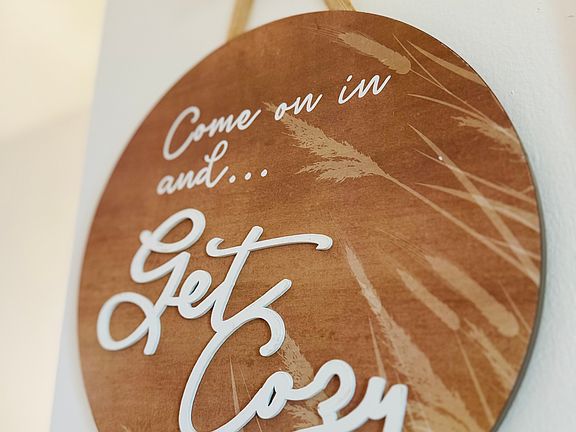 Come on in
and...
Get
Cozy